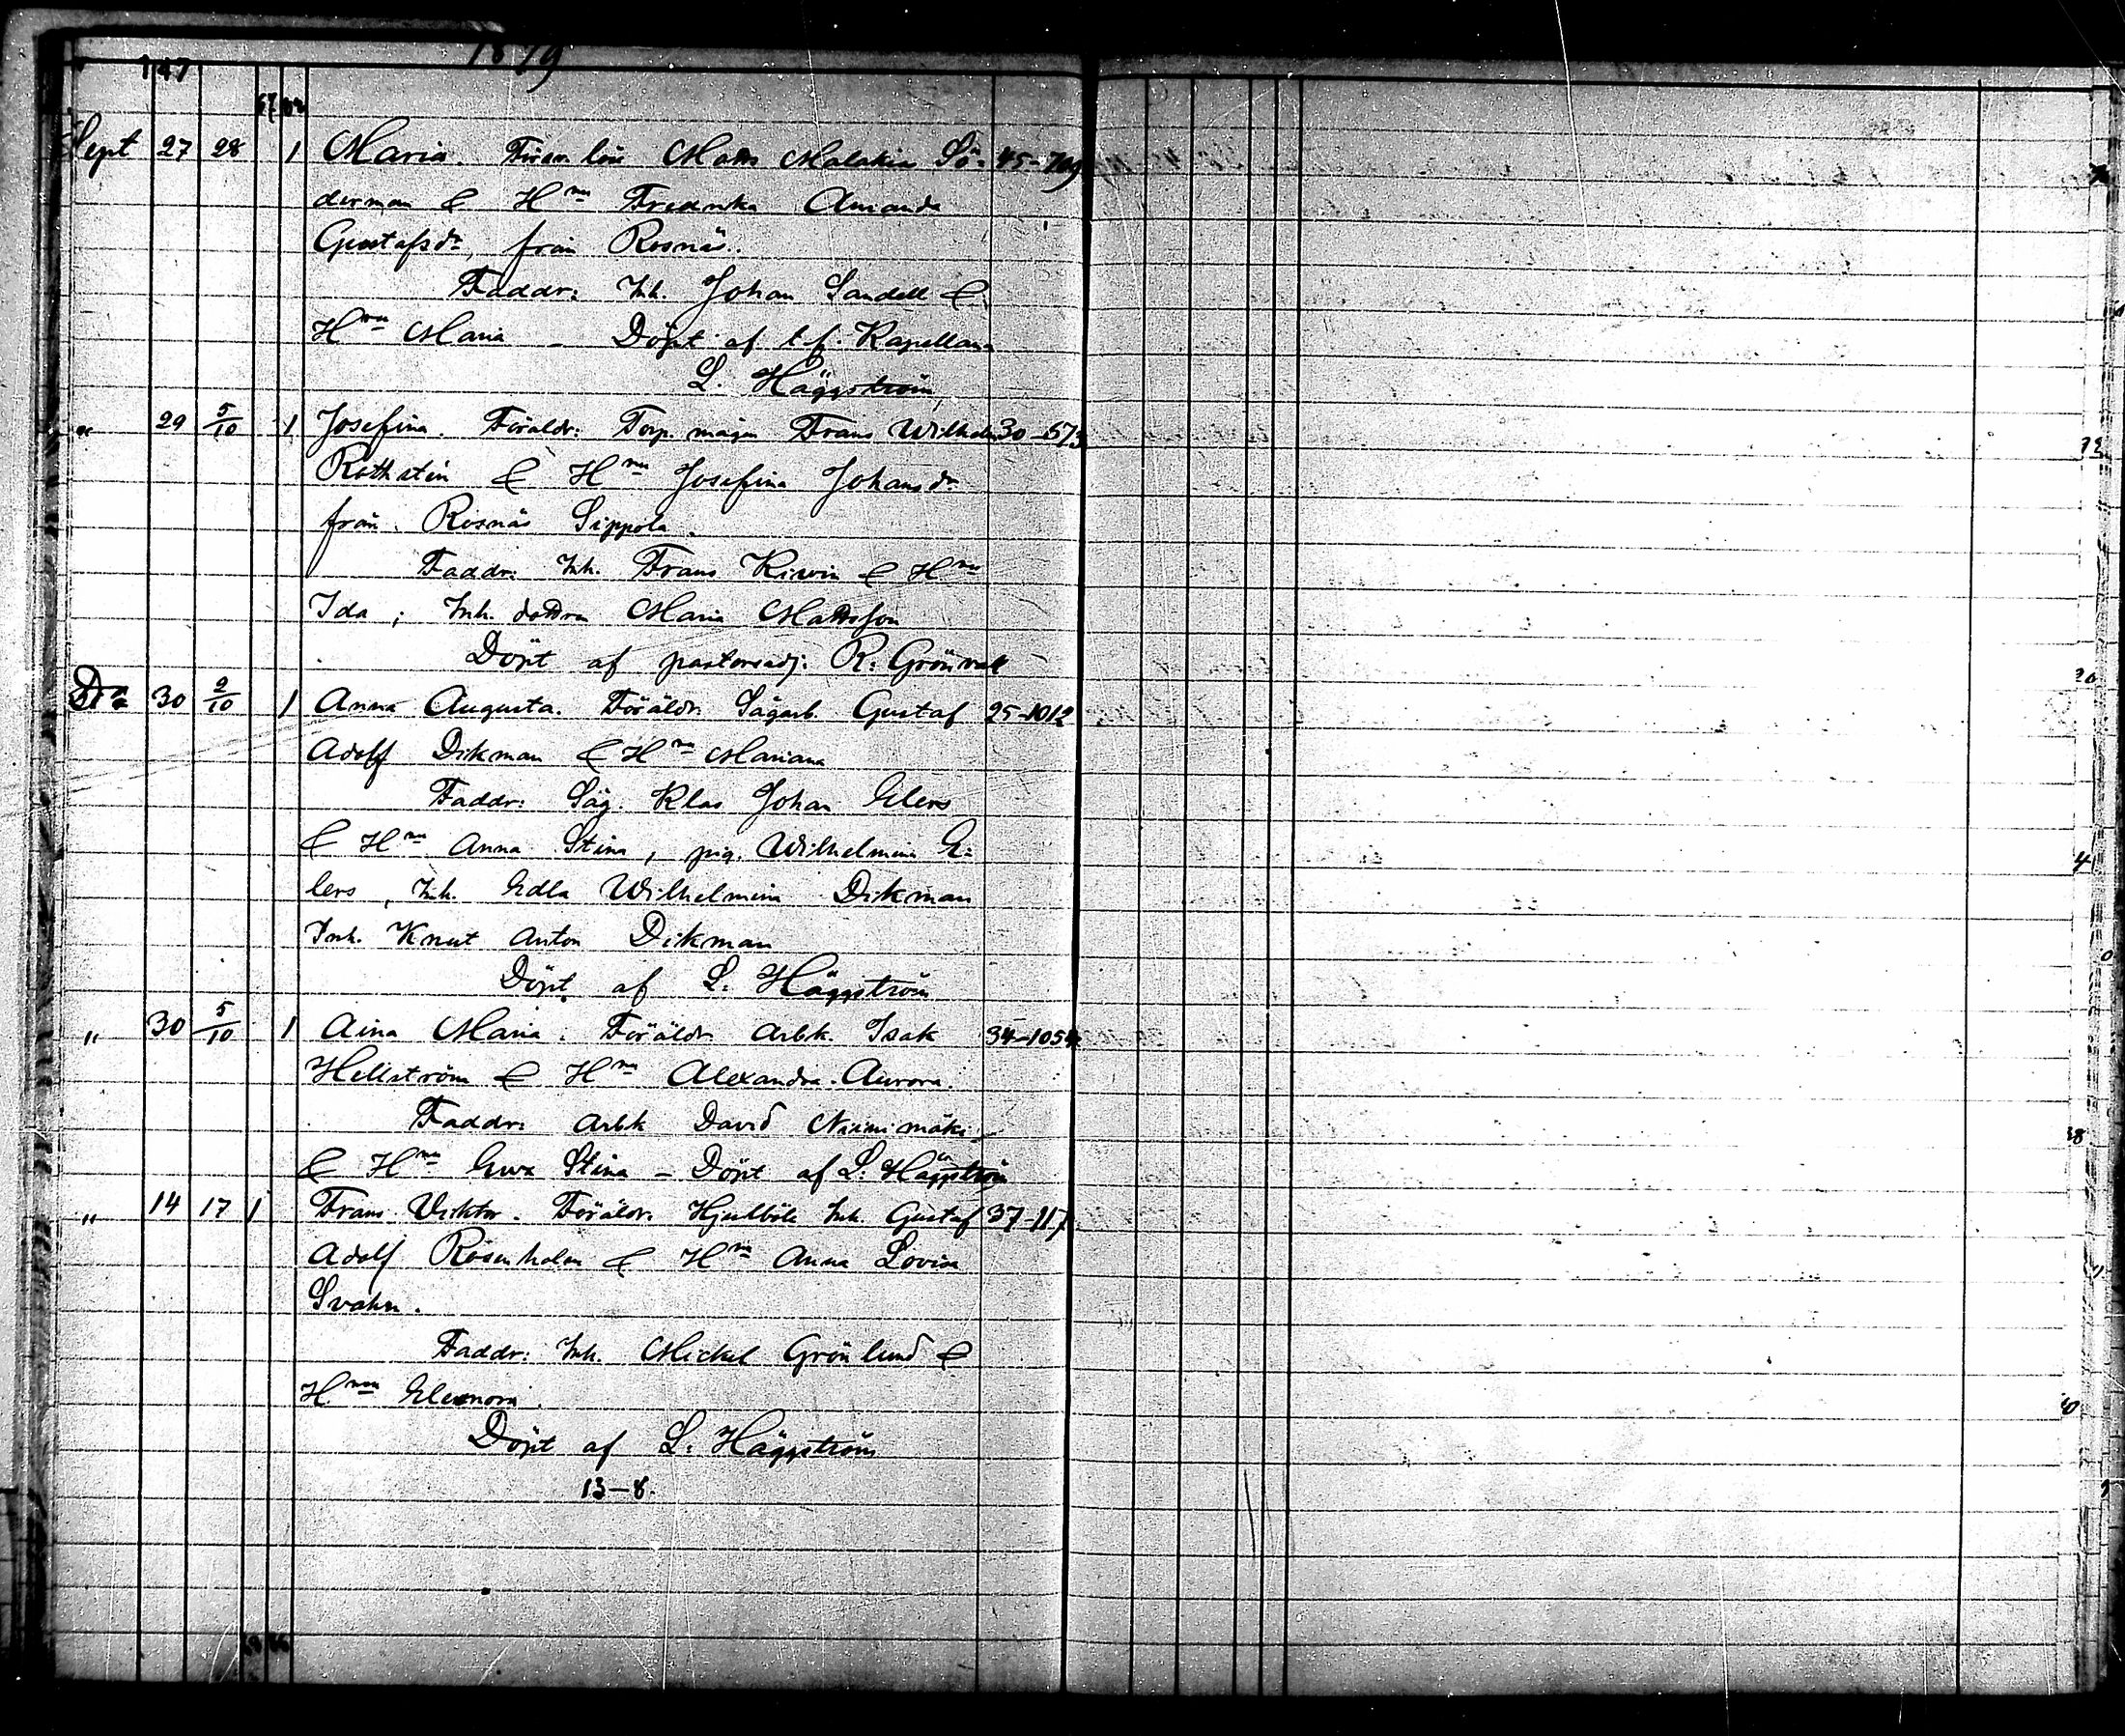 1879
147
Sept 27 28 1 Maria. Matts Malakias Sö- 45-709
derman & Hnu Fredrika Amanda
Gustafsdr, från Rosnäs.
Faddr: Inh. Johan Sandell &
Hnu Maria - Döpt af t.f. Kapellan
L. Häggström
" 29 5/10 1 Josefina. Föräldr: Torp. mågen Frans Wilhelm 30-573
Rothstén & Hnu Josefina Johansdr
från Rosnäs Sippola.
Faddr: Inh. Frans Kiwin & Hnu
Ida; Inh. dottren Maria Mattsson
Döpt af pastorsadj. R. Grönvall
30 2/10 1 Anna Augusta. Föräldr. Sågarb. Gustaf 25-1012
Adolf Dikman & Hnu Mariana
Faddr: Såg. Klas Johan Elers
& Hnu Anna Stina, pig. Wilhelmina E-
lers, Inh. Edla Wilhelmina Dikman
Inh. Knut Anton Dikman
Döpt af L. Häggström
" 30 5/10 1 Aina Maria. Föräldr Arbk. Isak 34-1054
Hellström & Hnu Alexandra Aurora.
Faddr: Arbk David Niinimäki
& Hnu Ewa Stina - Döpt af L. Häggström
" 14 17 1 Frans Viktor. Föräldr. Hjulböle Inh. Gustaf 37-117
Adolf Rosenholm & Hnu Anna Lovisa
Svahn.
Faddr: Inh. Mickel Grönlund &
Hnu Eleonora.
Döpt af L. Häggström
13-8.